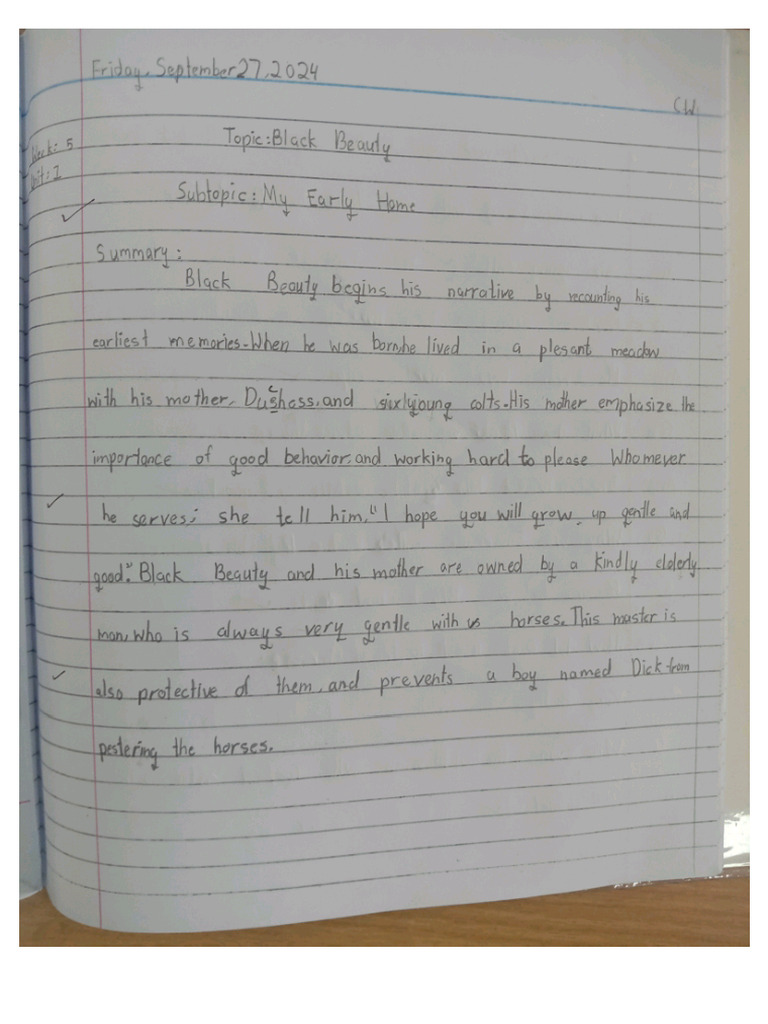 Friday, September 27, 2024
CW
Week: 5
Unit: 1
Topic: Black Beauty
Subtopic: My Early Home
Summary:
Black Beauty begins his narrative by recounting his
earliest memories. When he was born, he lived in a plesant meadow
with his mother, Duchess, and six young colts. His mother emphasize the
importance of good behavior, and working hard to please Whomever
he serves; she tell him, "I hope you will grow up gentle and
good." Black Beauty and his mother are owned by a kindly elderly
man, who is always very gentle with us horses. This master is
also protective of them, and prevents a boy named Dick from
pestering the horses.